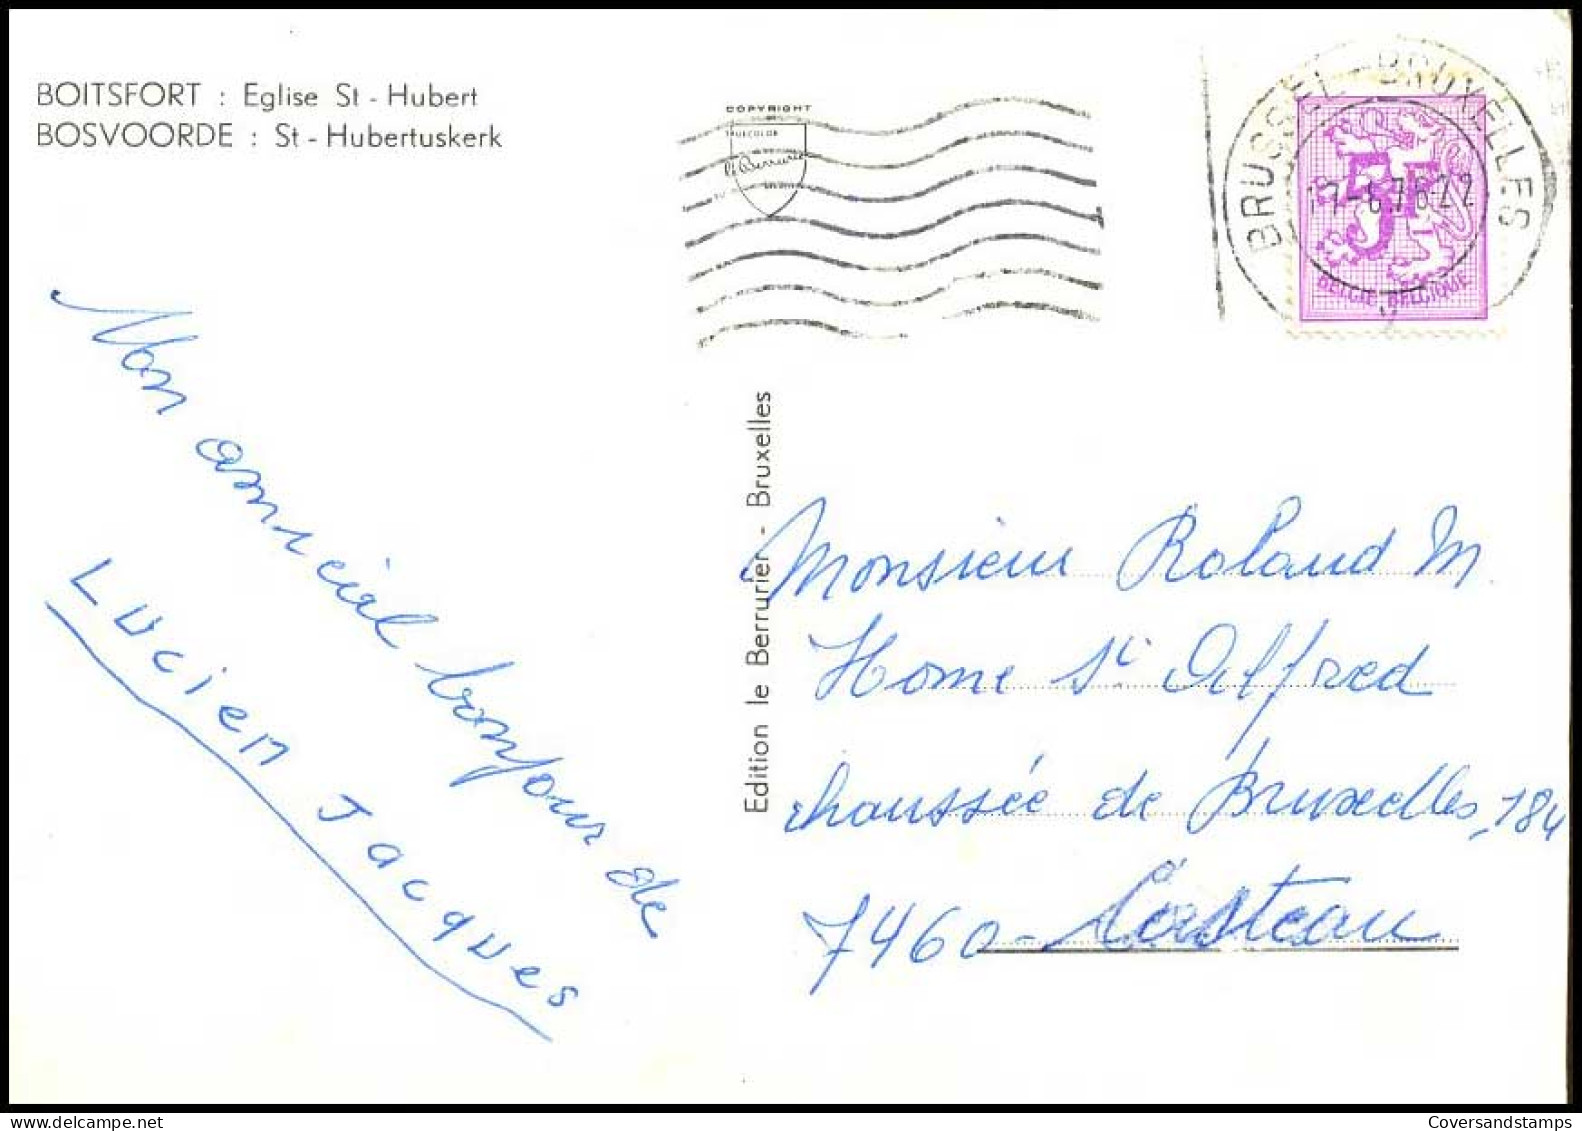 BOITSFORT : Eglise St - Hubert
BOSVOORDE : St - Hubertuskerk
COPYRIGHT
TRUECOLOR
le Berrurier
BRUSSEL - BRUXELLES
5F
BELGIE-BELGIQUE
Mon amical bonjour de
Lucien Jacques
Edition le Berrurier - Bruxelles
Monsieur Roland M
Home St Alfred
chaussée de Bruxelles, 184
7460 - Casteau
Coversandstamps